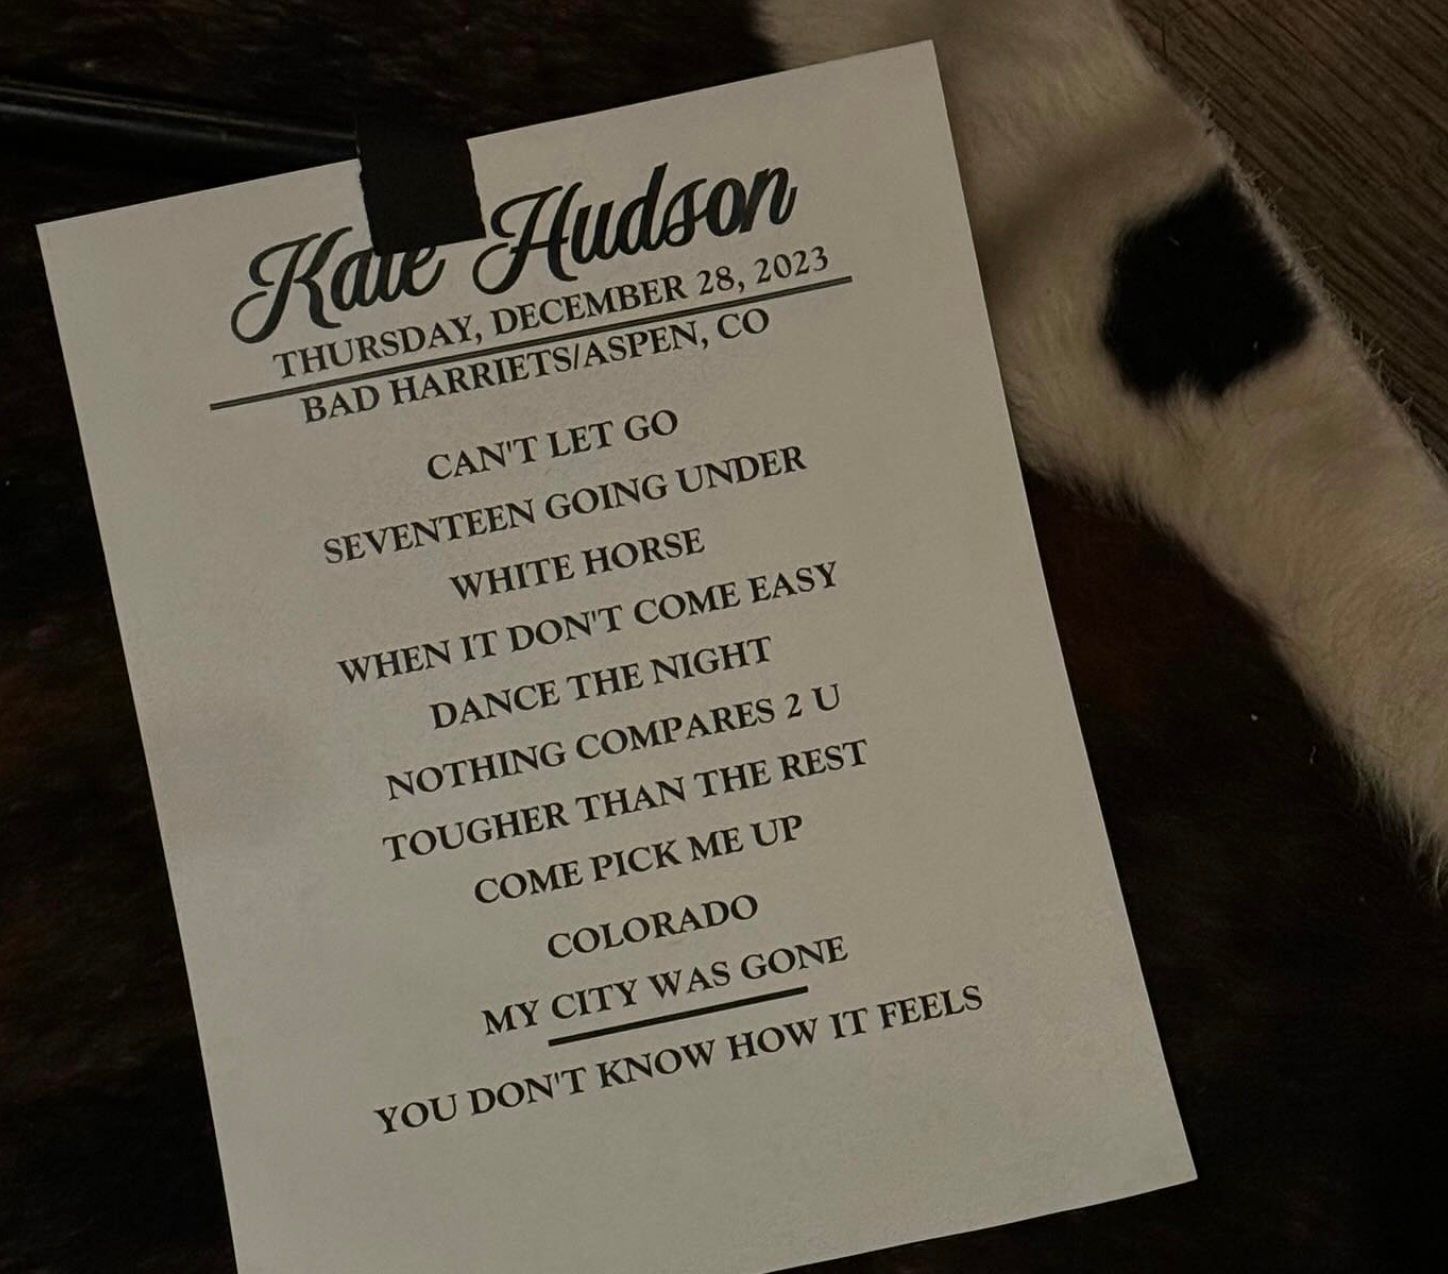 Kate Hudson
THURSDAY, DECEMBER 28, 2023
BAD HARRIETS/ASPEN, CO
CAN'T LET GO
SEVENTEEN GOING UNDER
WHITE HORSE
WHEN IT DON'T COME EASY
DANCE THE NIGHT
NOTHING COMPARES 2 U
TOUGHER THAN THE REST
COME PICK ME UP
COLORADO
MY CITY WAS GONE
YOU DON'T KNOW HOW IT FEELS